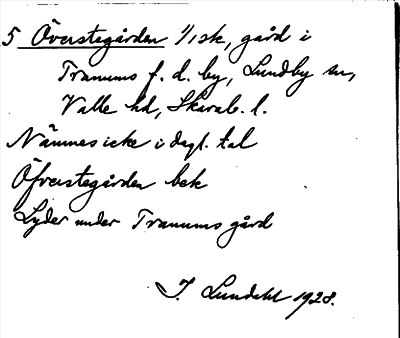 5 Överstegården 1/1 sk, gård i
Tranums f. d. by, Lundby sn,
Valle hd, Skarab. l.
Nämnes icke i dagl. tal
Öfverstegården bek
Lyder under Tranums gård
J. Lundahl 1928.